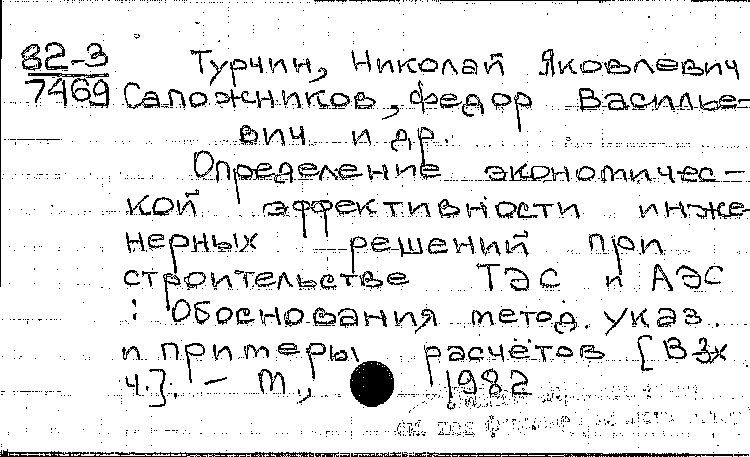 82-3 Турчин, Николай Яковлевич
7469 Сапожников, Федор Василье-
вич и др.
Определение экономичес-
кой эффективности инже-
нерных решений при
строительстве ТЭС и АЭС
: Обоснования метод. указ.
и примеры расчётов [В 3х
ч.]. - М., 1982